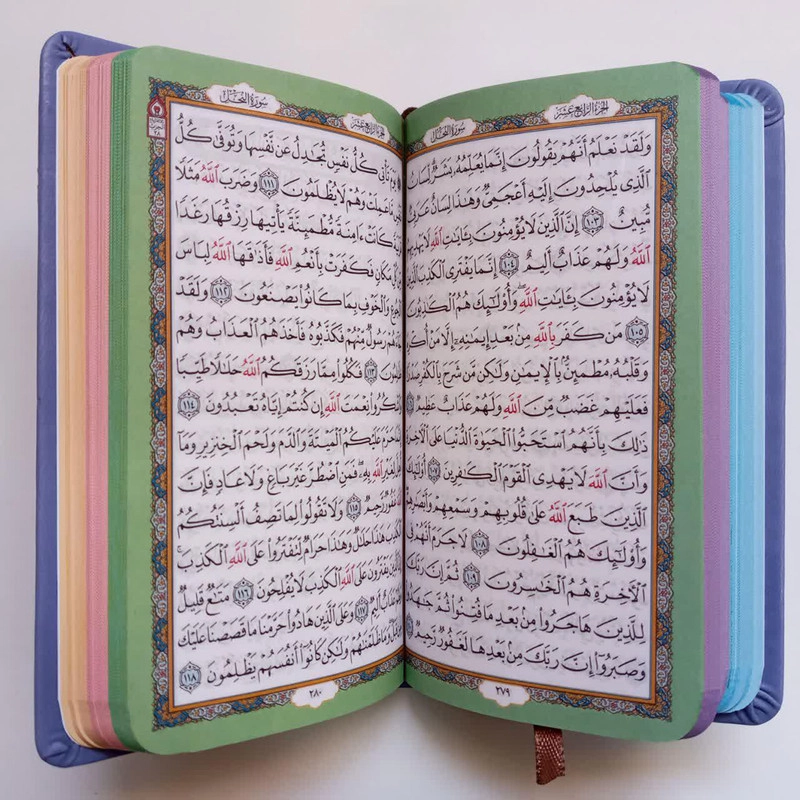 سُورَةُ النَّحْلِ الجُزْءُ الرَّابِعَ عَشَرَ
وَلَقَدْ نَعْلَمُ أَنَّهُمْ يَقُولُونَ إِنَّمَا يُعَلِّمُهُۥ بَشَرٌ لِّسَانُ
ٱلَّذِى يُلْحِدُونَ إِلَيْهِ أَعْجَمِىٌّ وَهَٰذَا لِسَانٌ عَرَبِىٌّ
مُّبِينٌ ١٠٣ إِنَّ ٱلَّذِينَ لَا يُؤْمِنُونَ بِـَٔايَٰتِ ٱللَّهِ لَا يَهْدِيهِمُ
ٱللَّهُ وَلَهُمْ عَذَابٌ أَلِيمٌ ١٠٤ إِنَّمَا يَفْتَرِى ٱلْكَذِبَ ٱلَّذِينَ
لَا يُؤْمِنُونَ بِـَٔايَٰتِ ٱللَّهِ وَأُو۟لَٰٓئِكَ هُمُ ٱلْكَٰذِبُونَ
١٠٥ مَن كَفَرَ بِٱللَّهِ مِنۢ بَعْدِ إِيمَٰنِهِۦٓ إِلَّا مَنْ أُكْرِهَ
وَقَلْبُهُۥ مُطْمَئِنٌّۢ بِٱلْإِيمَٰنِ وَلَٰكِن مَّن شَرَحَ بِٱلْكُفْرِ صَدْرًا
فَعَلَيْهِمْ غَضَبٌ مِّنَ ٱللَّهِ وَلَهُمْ عَذَابٌ عَظِيمٌ
ذَٰلِكَ بِأَنَّهُمُ ٱسْتَحَبُّوا۟ ٱلْحَيَوٰةَ ٱلدُّنْيَا عَلَى ٱلْءَاخِرَةِ
وَأَنَّ ٱللَّهَ لَا يَهْدِى ٱلْقَوْمَ ٱلْكَٰفِرِينَ ١٠٧ أُو۟لَٰٓئِكَ
ٱلَّذِينَ طَبَعَ ٱللَّهُ عَلَىٰ قُلُوبِهِمْ وَسَمْعِهِمْ وَأَبْصَٰرِهِمْ
وَأُو۟لَٰٓئِكَ هُمُ ٱلْغَٰفِلُونَ ١٠٨ لَا جَرَمَ أَنَّهُمْ فِى
ٱلْءَاخِرَةِ هُمُ ٱلْخَٰسِرُونَ ١٠٩ ثُمَّ إِنَّ رَبَّكَ
لِلَّذِينَ هَاجَرُوا۟ مِنۢ بَعْدِ مَا فُتِنُوا۟ ثُمَّ جَٰهَدُوا۟
وَصَبَرُوٓا۟ إِنَّ رَبَّكَ مِنۢ بَعْدِهَا لَغَفُورٌ رَّحِيمٌ
٢٧٩
سُورَةُ النَّحْلِ الجُزْءُ الرَّابِعَ عَشَرَ
يَوْمَ تَأْتِى كُلُّ نَفْسٍ تُجَٰدِلُ عَن نَّفْسِهَا وَتُوَفَّىٰ كُلُّ
نَفْسٍ مَّا عَمِلَتْ وَهُمْ لَا يُظْلَمُونَ ١١١ وَضَرَبَ ٱللَّهُ مَثَلًا
كَانَتْ ءَامِنَةً مُّطْمَئِنَّةً يَأْتِيهَا رِزْقُهَا رَغَدًا
كُلِّ مَكَانٍ فَكَفَرَتْ بِأَنْعُمِ ٱللَّهِ فَأَذَٰقَهَا ٱللَّهُ لِبَاسَ
ٱلْجُوعِ وَٱلْخَوْفِ بِمَا كَانُوا۟ يَصْنَعُونَ ١١٢ وَلَقَدْ
رَسُولٌ مِّنْهُمْ فَكَذَّبُوهُ فَأَخَذَهُمُ ٱلْعَذَابُ وَهُمْ
١١٣ فَكُلُوا۟ مِمَّا رَزَقَكُمُ ٱللَّهُ حَلَٰلًا طَيِّبًا
وَٱشْكُرُوا۟ نِعْمَتَ ٱللَّهِ إِن كُنتُمْ إِيَّاهُ تَعْبُدُونَ ١١٤
حَرَّمَ عَلَيْكُمُ ٱلْمَيْتَةَ وَٱلدَّمَ وَلَحْمَ ٱلْخِنزِيرِ وَمَآ
لِغَيْرِ ٱللَّهِ بِهِۦ فَمَنِ ٱضْطُرَّ غَيْرَ بَاغٍ وَلَا عَادٍ فَإِنَّ
غَفُورٌ رَّحِيمٌ ١١٥ وَلَا تَقُولُوا۟ لِمَا تَصِفُ أَلْسِنَتُكُمُ
ٱلْكَذِبَ هَٰذَا حَلَٰلٌ وَهَٰذَا حَرَامٌ لِّتَفْتَرُوا۟ عَلَى ٱللَّهِ ٱلْكَذِبَ
يَفْتَرُونَ عَلَى ٱللَّهِ ٱلْكَذِبَ لَا يُفْلِحُونَ ١١٦ مَتَٰعٌ قَلِيلٌ
عَذَابٌ أَلِيمٌ ١١٧ وَعَلَى ٱلَّذِينَ هَادُوا۟ حَرَّمْنَا مَا قَصَصْنَا عَلَيْكَ
وَمَا ظَلَمْنَٰهُمْ وَلَٰكِن كَانُوٓا۟ أَنفُسَهُمْ يَظْلِمُونَ ١١٨
٢٨٠